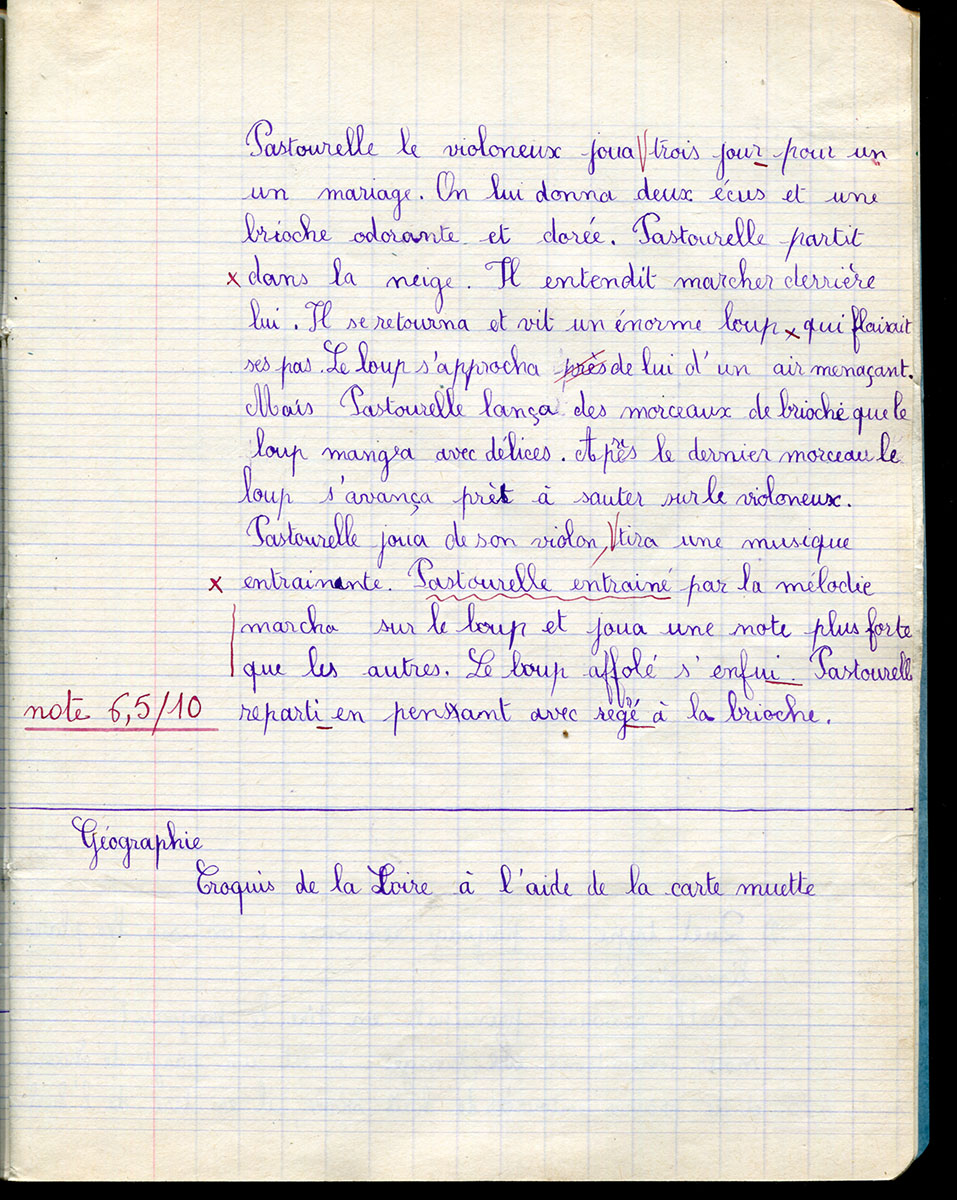 Pastourelle le violoneux joua trois jour pour un
un mariage. On lui donna deux écus et une
brioche odorante et dorée. Pastourelle partit
x dans la neige. Il entendit marcher derrière
lui. Il se retourna et vit un énorme loup x qui flairait
ses pas. Le loup s'approcha près de lui d'un air menaçant.
Mais Pastourelle lança des morceaux de brioche que le
loup mangea avec délices. Après le dernier morceau le
loup s'avança prêt à sauter sur le violoneux.
Pastourelle joua de son violon, tira une musique
x entrainante. Pastourelle entrainé par la mélodie
marcha sur le loup et joua une note plus forte
que les autres. Le loup affolé s'enfui. Pastourell
note 6,5/10 reparti en penssant avec regé à la brioche.
Géographie
Croquis de la Loire à l'aide de la carte muette